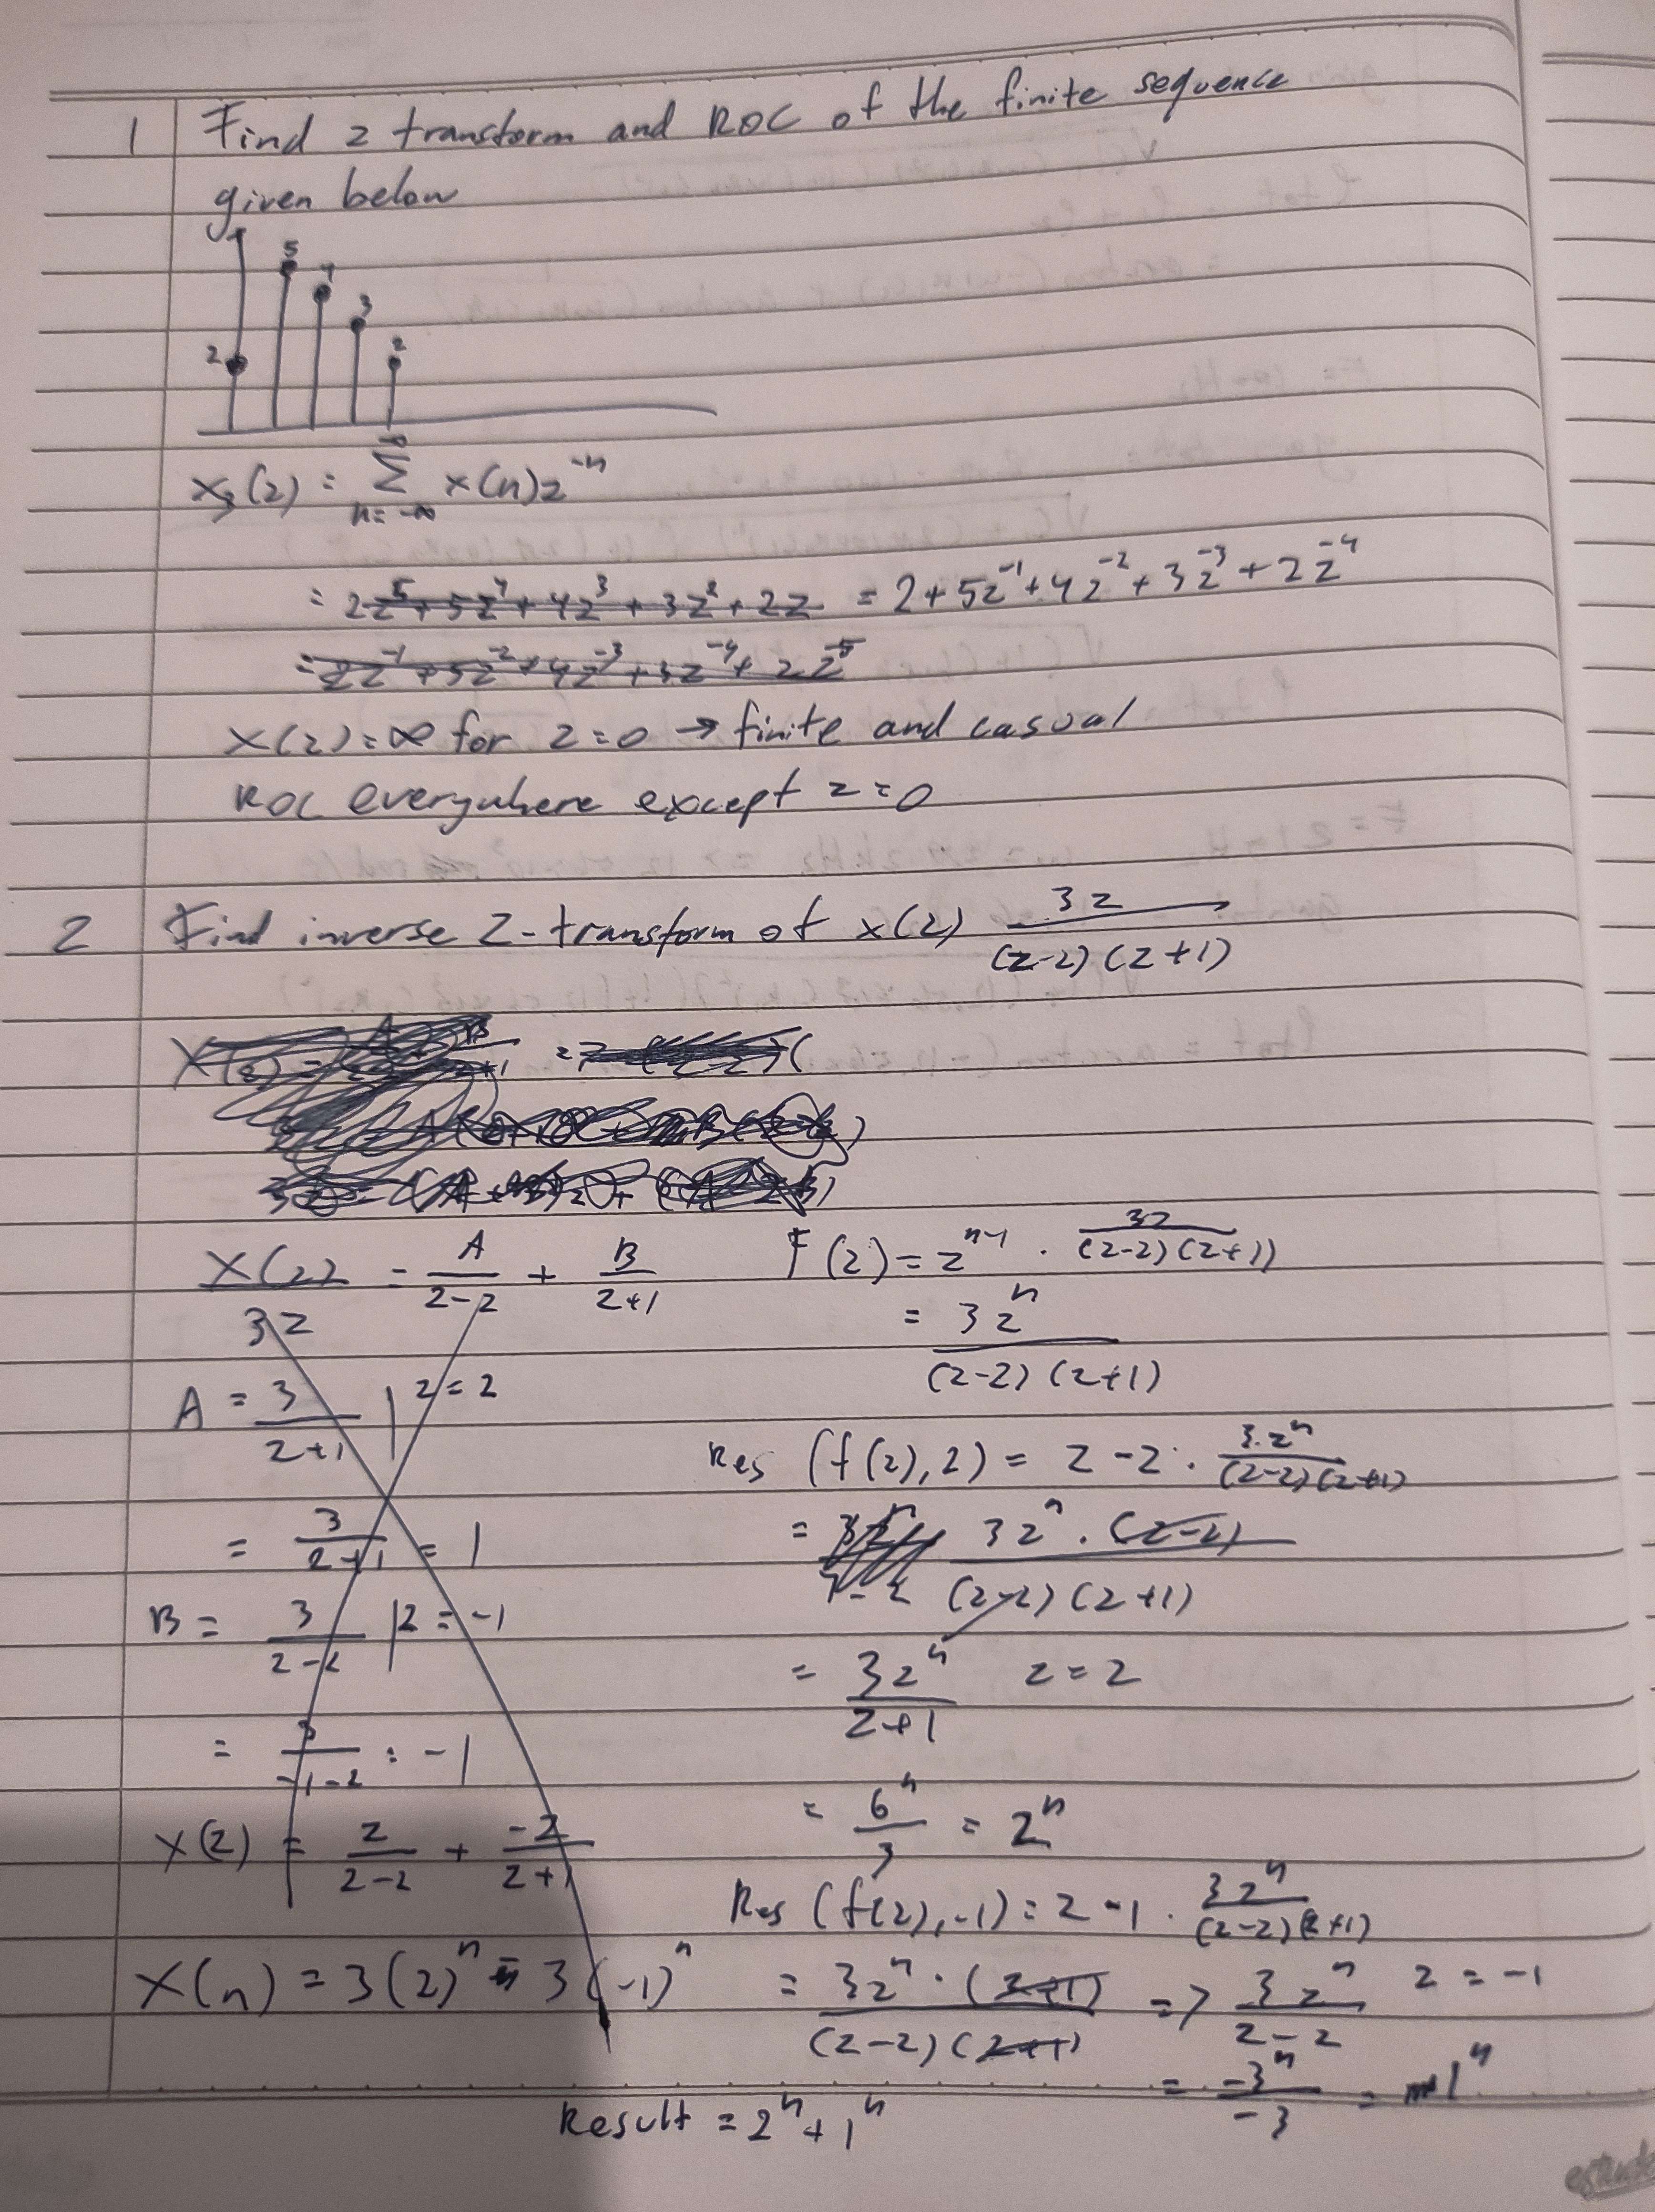 1 Find z transform and ROC of the finite sequence
given below
5
4
3
2 2
X(z) = ∞ Σ n=-∞ x(n)z^-n
= 2z^5 + 5z^4 + 4z^3 + 3z^2 + 2z = 2 + 5z^-1 + 4z^-2 + 3z^-3 + 2z^-4
= 2z^-1 + 5z^-2 + 4z^-3 + 3z^-4 + 2z^-5
X(z) = ∞ for z=0 → finite and casual
ROC everywhere except z=0
2 Find inverse Z-transform of x(z) 3z / (z-2)(z+1)
X(z) / 3z = A / z-2 + B / z+1
A = 3 / z+1 | z=2
= 3 / 2+1 = 1
B = 3 / z-2 | z=-1
= 3 / -1-2 = -1
X(z) = z / z-2 + -z / z+1
X(n) = 3(2)^n - 3(-1)^n
F(z) = z^n-1 · 3z / (z-2)(z+1)
= 3z^n / (z-2)(z+1)
Res (f(z),2) = z-2 · 3.z^n / (z-2)(z+1)
= 3z^n · (z-2) / (z-2)(z+1)
= 3z^n / z+1 z=2
= 6^n / 3 = 2^n
Res (f(z),-1) = z-1 · 3z^n / (z-2)(z+1)
= 3z^n · (z+1) / (z-2)(z+1) => 3z^n / z-2 z=-1
= -3^n / -3 = 1^n
Result = 2^n + 1^n